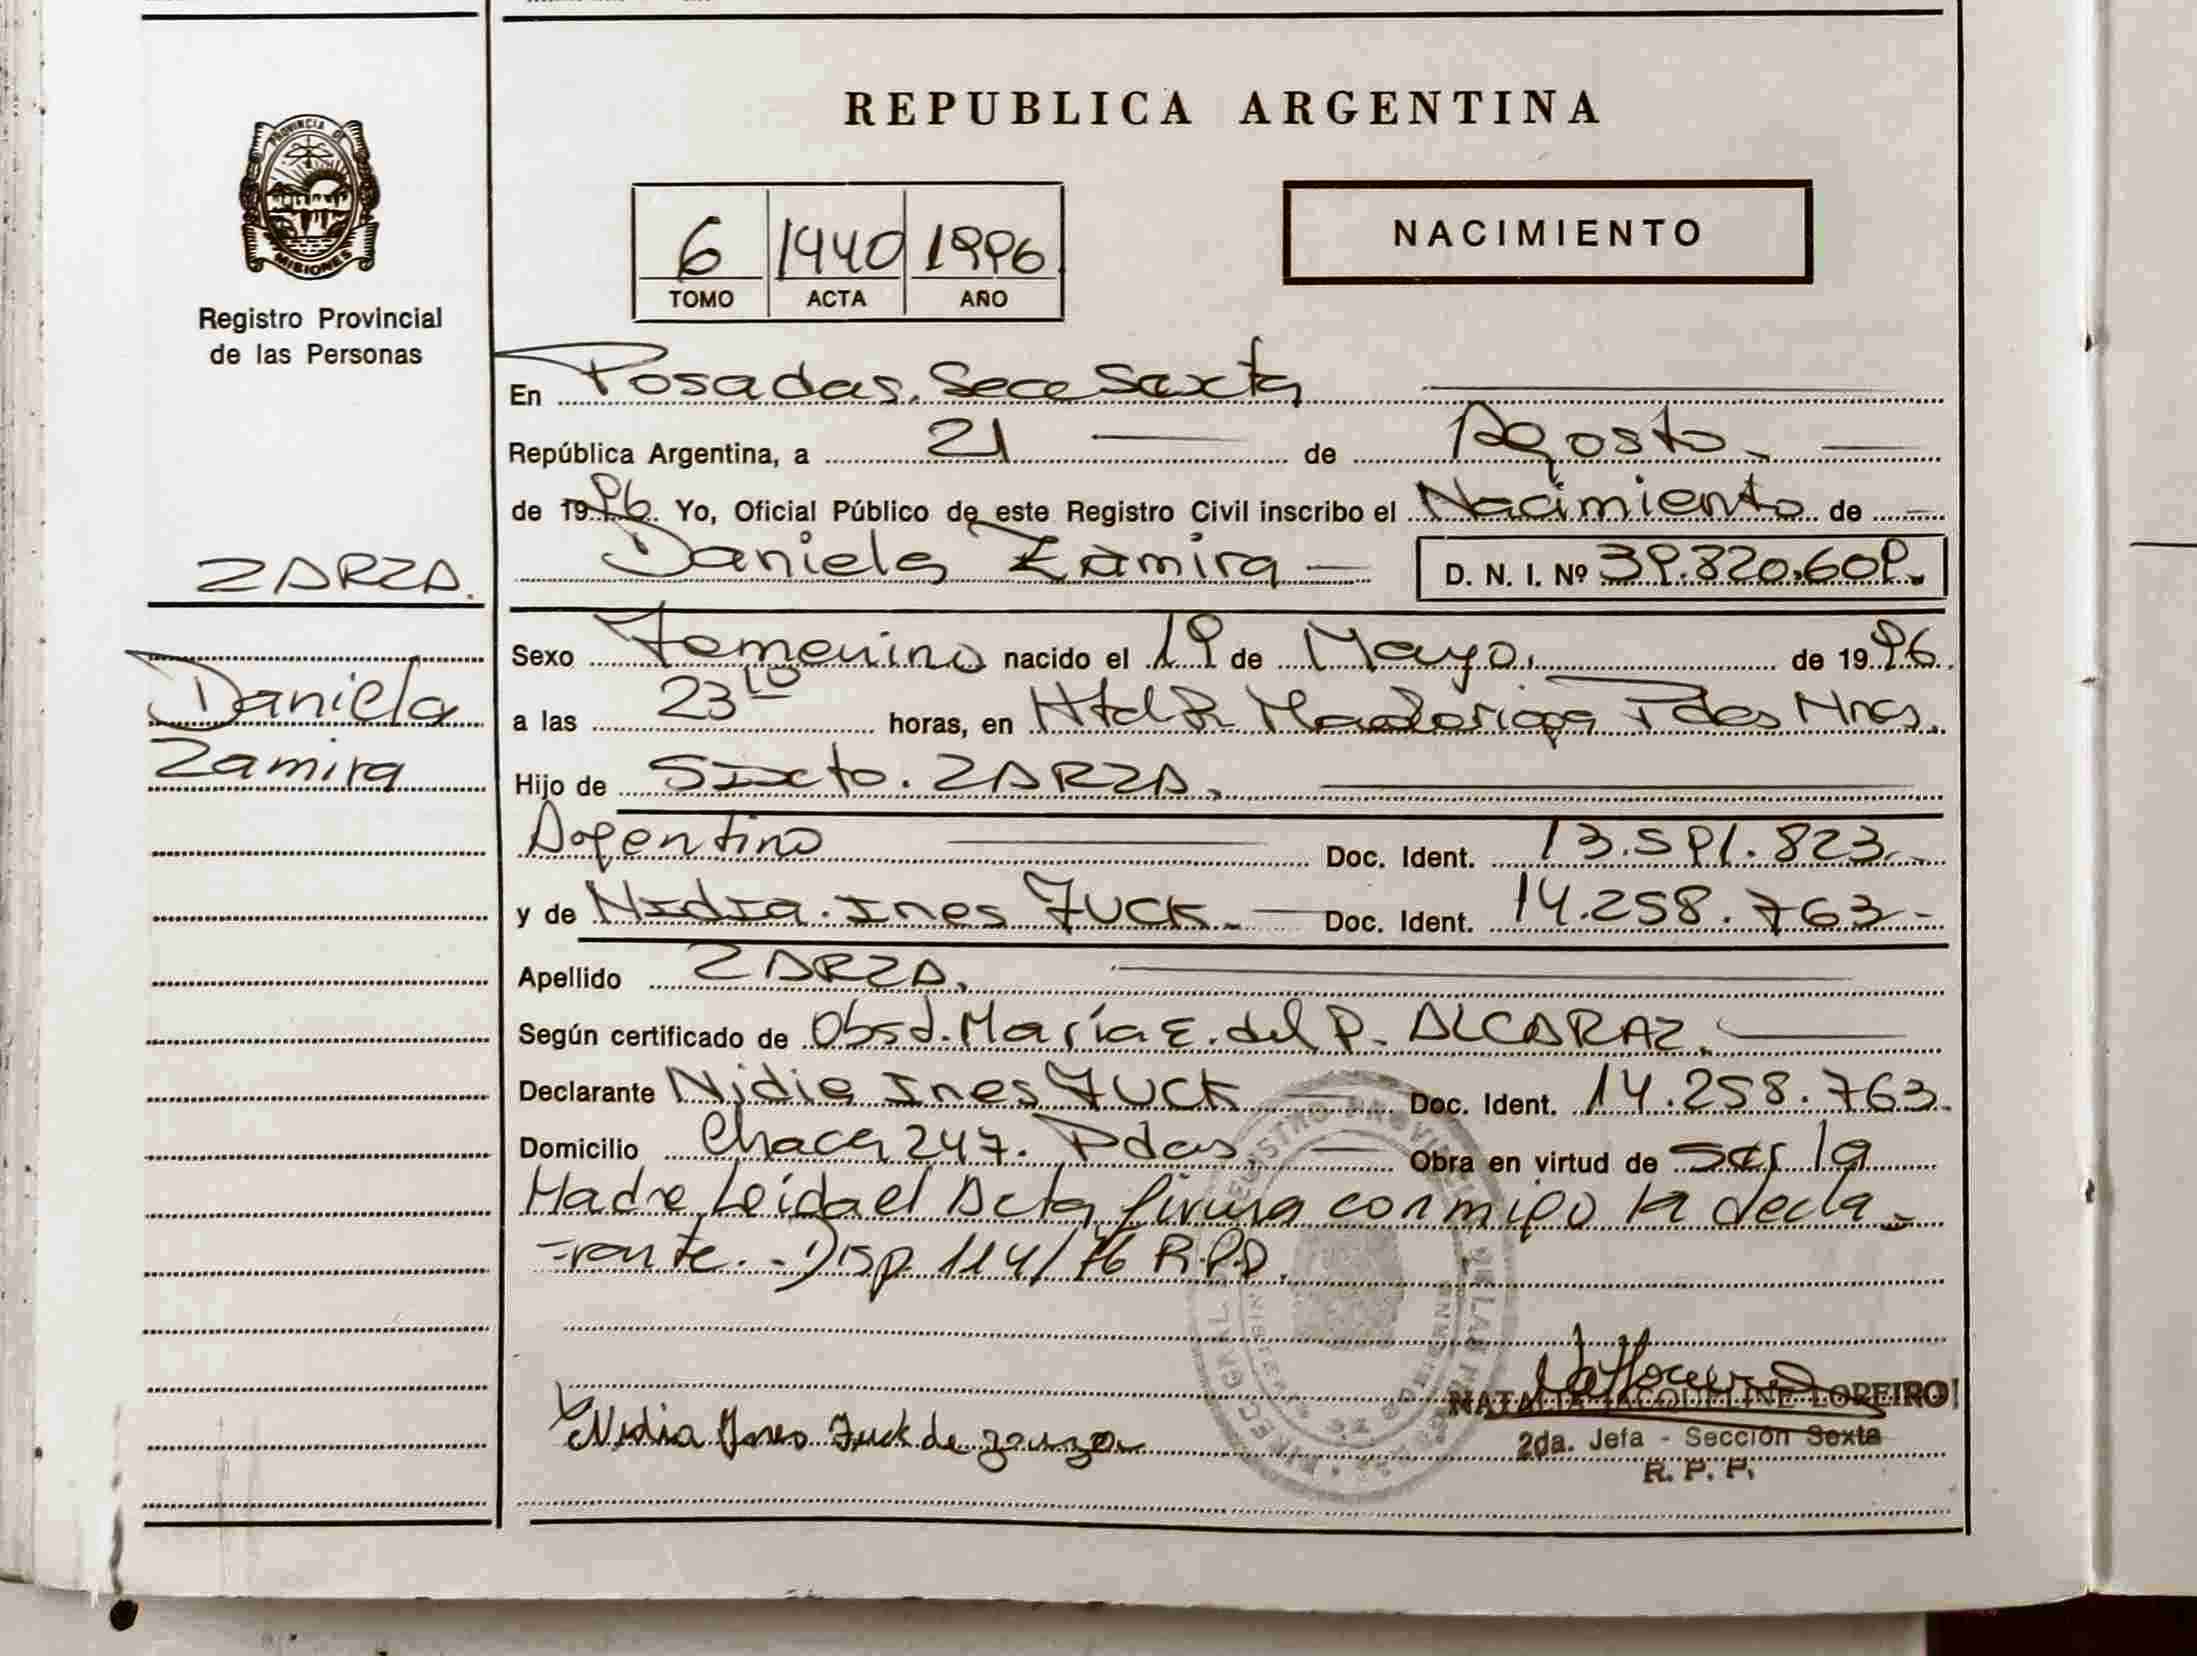 PROVINCIA DE
MISIONES
Registro Provincial
de las Personas
ZARZA.
Daniela
Zamira
REPUBLICA ARGENTINA
6 1440 1996
TOMO ACTA AÑO
NACIMIENTO
En Posadas, Secc Sexta
República Argentina, a 21 de Agosto
de 1996 Yo, Oficial Público de este Registro Civil inscribo el Nacimiento de
Daniela Zamira D. N. I. Nº 39.820.609.
Sexo Femenino nacido el 19 de Mayo. de 1996.
a las 23 10 horas, en Madariaga Pdas Mnes.
Hijo de Sixto. ZARZA.
Argentino Doc. Ident. 13.591.823.-
y de Nidia. Ines FUCK.- Doc. Ident. 14.258.763-
Apellido ZARZA.
Según certificado de Obst. María E. del P. ALCARAZ.
Declarante Nidia Ines FUCK Doc. Ident. 14.258.763.
Domicilio Chaca 247. Pdas. Obra en virtud de ser la
Madre Leida el Acta, firma conmigo la decla-
-rante.- Disp. 114/76 R.P.P.
Nidia Ines Fuck de zarza
NATALIA JACQUELINE LOREIRO
2da. Jefa - Sección Sexta
R. P. P.